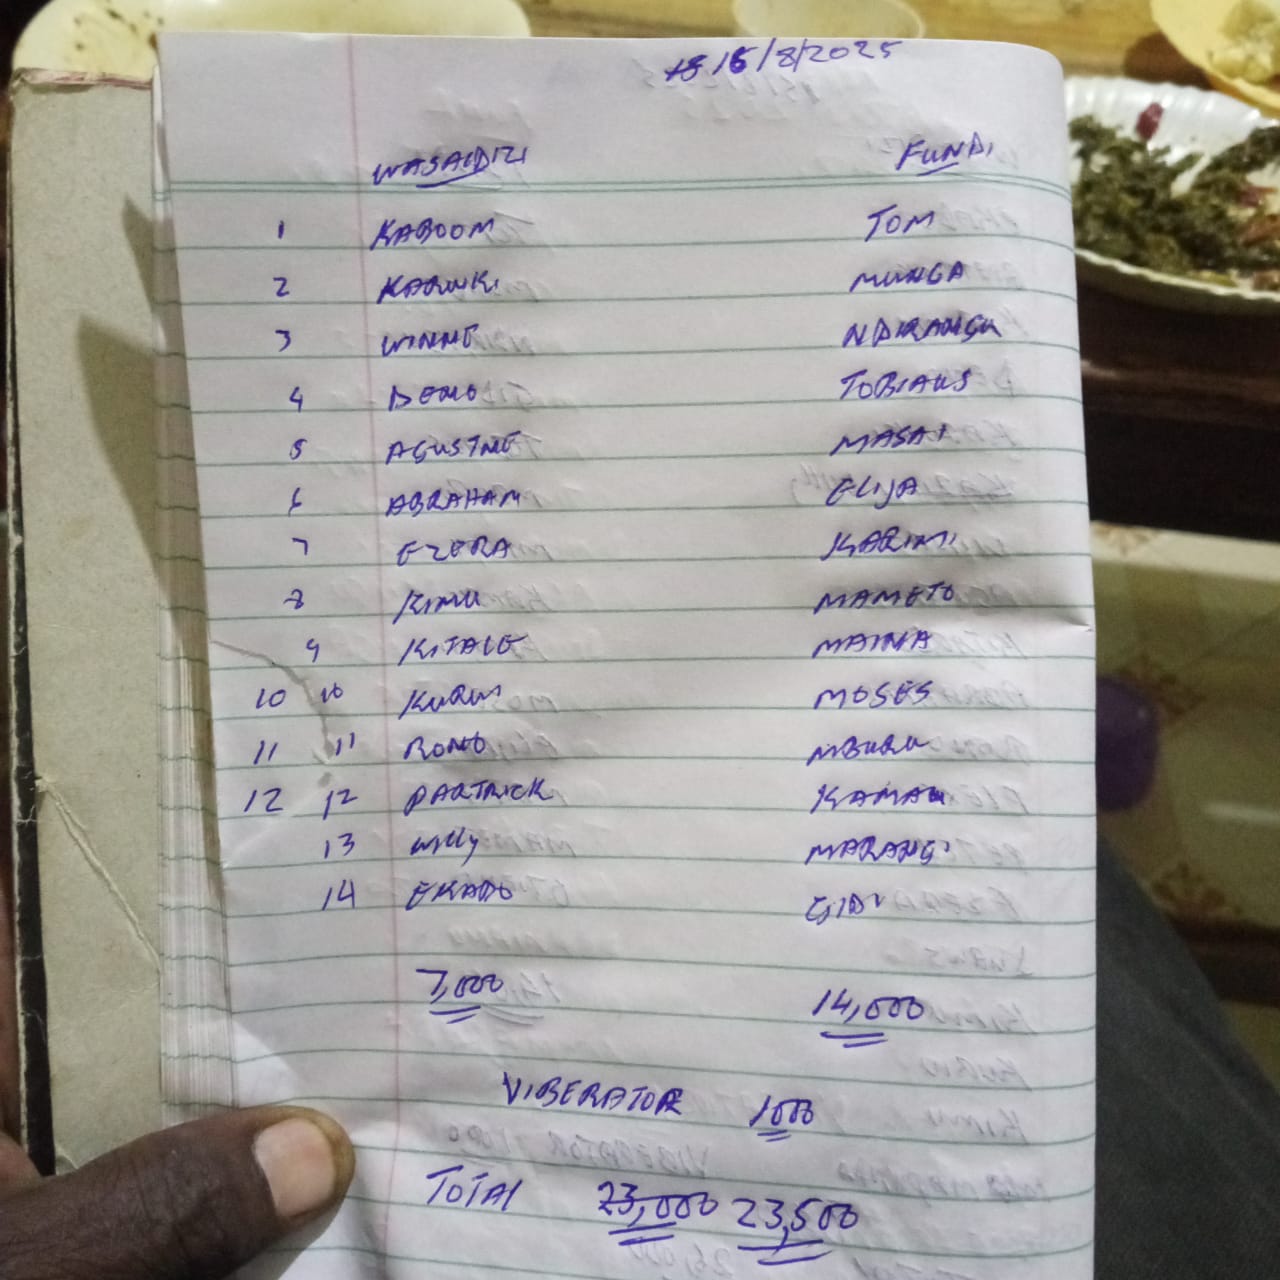 16/8/2025
WASAIDIZI FUNDI
1 KABOOM TOM
2 KARIUKI MUNGA
3 WINNE NDIRANGU
4 DEMO TOBIAUS
5 AGUSTINE MASAI
6 ABRAHAM ELIJA
7 EZERA KARIMI
8 KIMU MAMETO
9 KITALE MAINA
10 10 MOSES
11 11 RONO MBURU
12 12 PARTRICK KAMAU
13 Willy MARANGI
14 EKADO GIDI
7,000 14,000
VIBERATOR 1000
TOTAL 23,000 23,500